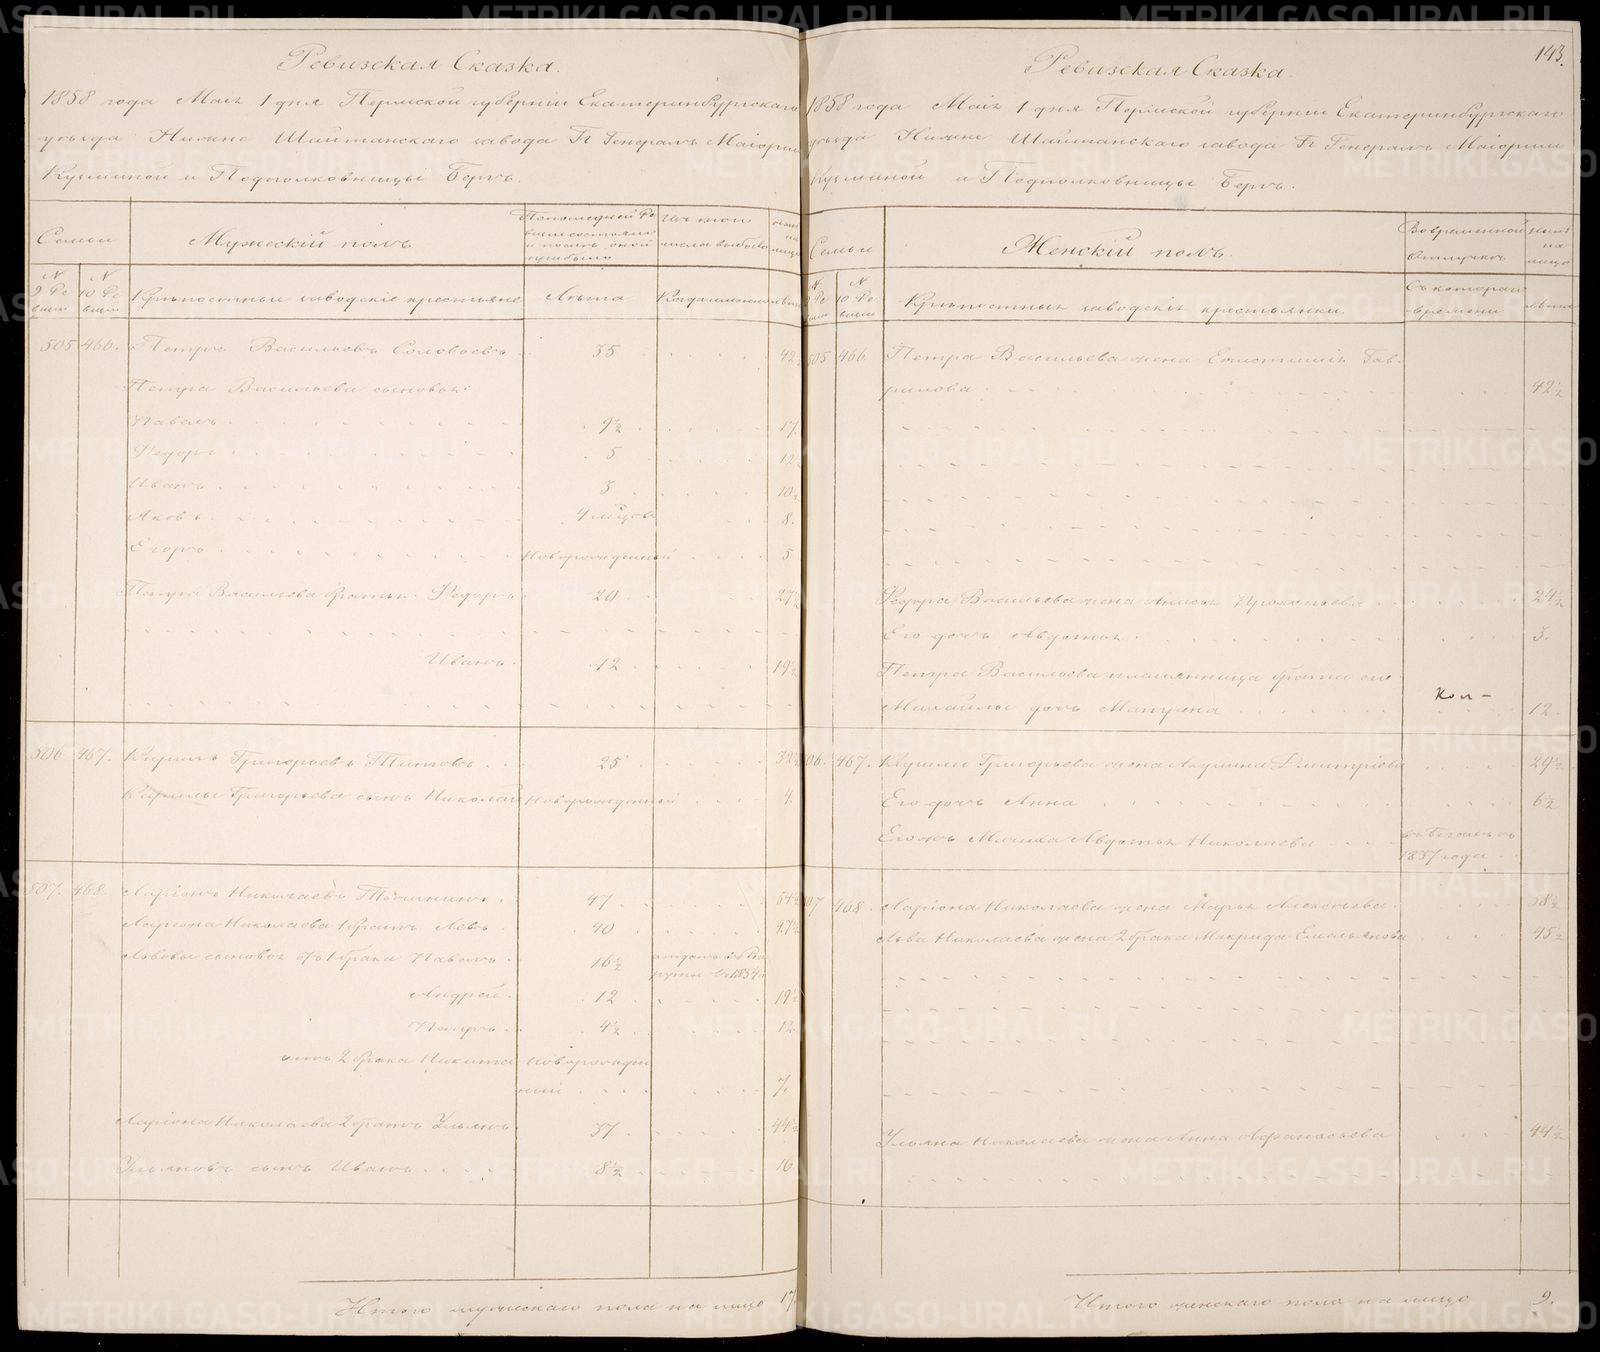 Ревизская Сказка.
1858 года Маія 1 дня Пермской губерніи Екатеринбургскаго
уѣзда Нижне Шайтанскаго завода Гг Генералъ Маіорши
Кузьминой и Подполковницы Бергъ.
Семьи
Мужескій полъ
По последней Ре
визіи состояло
и послѣ оной
прибыло
Изъ того
числа выбыло
ныне
на
лицо
№
9 Ре
визіи
№
10 Ре
визіи
Крѣпостные заводскіе крестьяне
Лѣта
Когда именно
лѣта
505 466. Петръ Васильевъ Соловьевъ 35 42½
Петра Васильева сыновья:
Павелъ 9½ 17.
Федоръ 5 12½
Иванъ 3 10½
Яковъ 4 месяц. 8.
Егоръ Новорожденный 5
Петра Васильева братья. Федоръ 20 27½
Иванъ. 12 19½
506 467. Кирилъ Григорьевъ Титовъ 25 32½
Кирилы Григорьева сынъ Николай Новорожденный 4.
507. 468. Ларіонъ Николаевъ 47 54½
Ларіона Николаева 1 братъ Левъ 40 47½
Львовы сыновья отъ 1 брака Павелъ 16½ отданъ въ Ре
круты въ 1854 г.
Андрей 12 19½
Петръ 4½ 12
отъ 2 брака Никита Новорожден
ный 7.
Ларіона Николаева 2 братъ Ульянъ 37 44½
Ульяновъ сынъ Иванъ 8½ 16
Итого мужескаго пола на лицо 17.
143.
Ревизская Сказка.
1858 года Маія 1 дня Пермской губерніи Екатеринбургскаго
уѣзда Нижне Шайтанскаго завода Гг Генералъ Маіорши
Кузьминой и Подполковницы Бергъ.
Семьи
Женскій полъ.
Во временной
отлучкѣ
ныне
на
лицо
№
9 Ре
визіи
№
10 Ре
визіи
Крѣпостныя заводскія крестьянки.
Съ котораго
времени
лѣта
505 466 Петра Васильева жена Гав-
рилова 42½
Федора Васильева жена Анисья Прокопьева 24½
Его дочь Авдотья 3.
Петра Васильева племянница брата его
Михайлы дочь Матрена Кол- 12
506. 467. Кирилы Григорьева жена Акулина Дмитріева 29½
Его дочь Анна 6½
Его жъ Мачиха Авдотья Николаева въ бегахъ съ
1837 года
507 468. Ларіона Николаева жена Марья Алексѣева 58½
Льва Николаева жена 2 брака Макрида Емельянова 45½
Ульяна Николаева жена Анна Афанасьева 44½
Итого женскаго пола на лицо 9.
METRIKI.GASO-URAL.RU